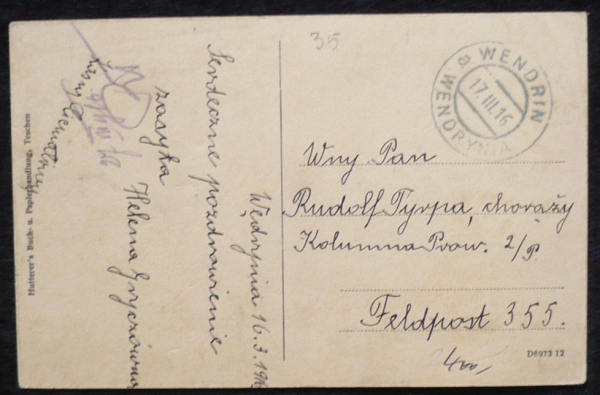 35
WENDRIN
17.III.16
WENDRYNIA
Wny Pan
Rudolf Tyrpa, chorąży
Kolumna Prow. 2/P.
Feldpost 355.
400,
D5973 12
Wędrynia 16.3.1916
Serdeczne pozdrowienie
zasyła
Helena
Hutterer's Buch- u. Papierhandlung, Teschen